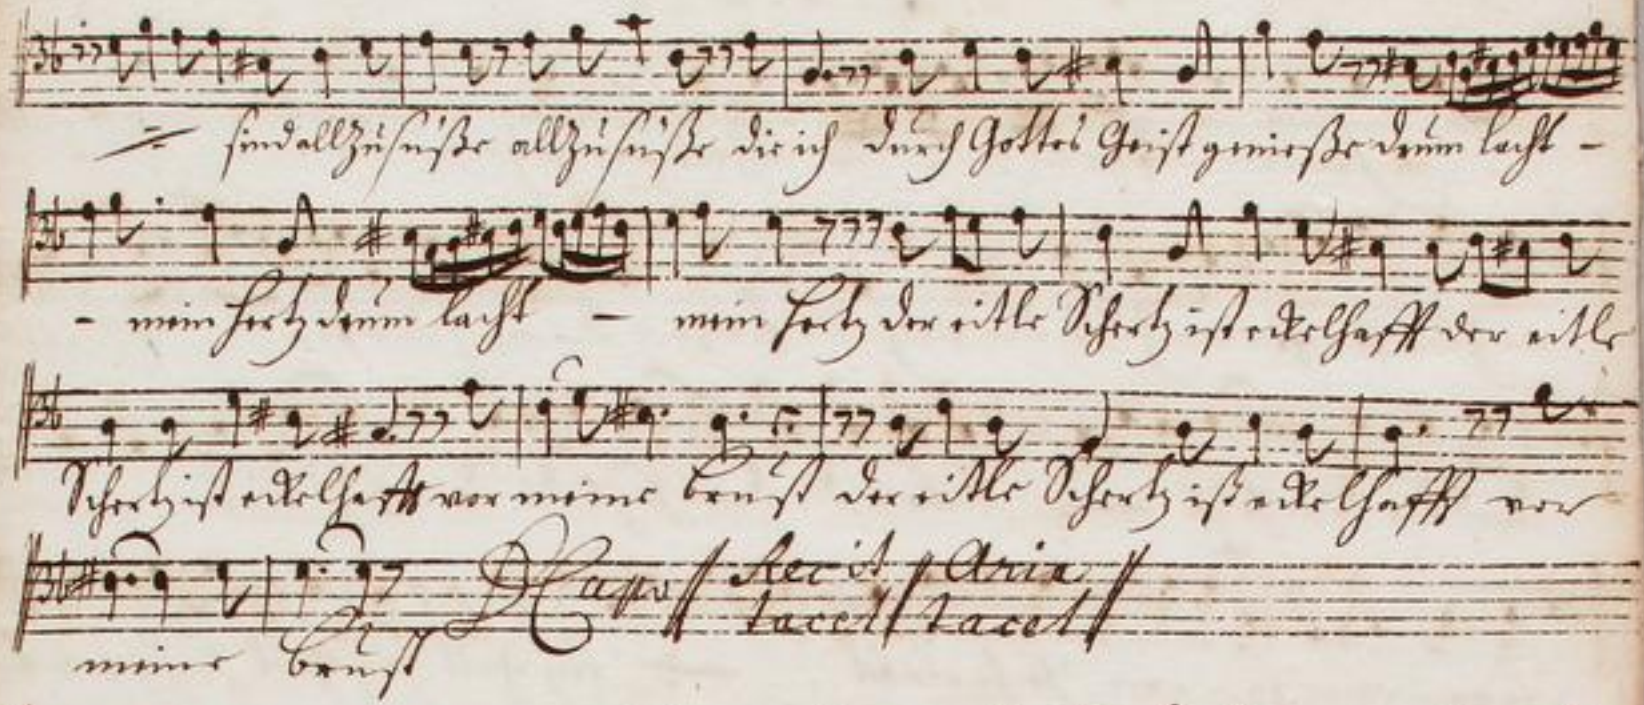 sind allzu süße allzu süße die ich durch Gottes Geist genieße drum lacht -
- mein Hertz drum lacht - mein Hertz der eitle Schertz ist eckelhafft der eitle
Schertz ist eckelhafft vor meine Brust der eitle Schertz ist eckelhafft vor
D Capo // Recit // Aria //
tacet // tacet //
meine Brust